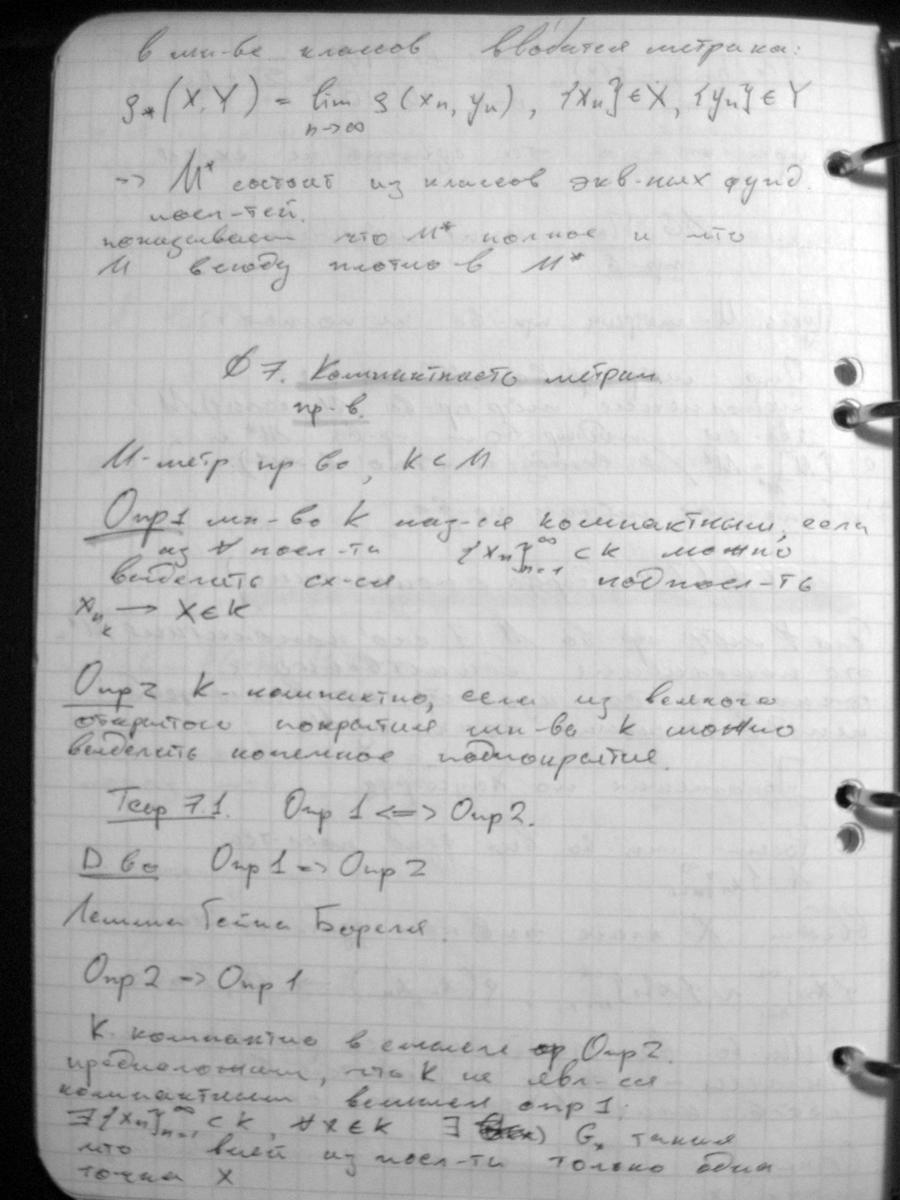 в мн-ве классов вводится метрика:
ρ*(X,Y) = lim ρ(xn, yn), {xn}∈X, {yn}∈Y
n->∞
-> M* состоит из классов экв-ных фунд.
посл-тей.
показывает что M* полное и что
M всюду плотно в M*
§ 7. Компактность метрич
пр-в.
M-метр. пр во, K⊂M
Опр1 мн-во K наз-ся компактным, если
из ∀ посл-ти {xn}∞n=1 ⊂ K можно
выделить сх-ся подпосл-ть
xnk -> X∈K
Опр2 K-компактно, если из всякого
открытого покрытия мн-ва K можно
выделить конечное подпокрытие.
Теор 7.1. Опр 1 <=> Опр 2.
D во Опр 1 => Опр 2
Лемма Гейне Бореля.
Опр 2 => Опр 1
K-компактно в смысле Опр 2.
предположим, что K не явл-ся
компактным в смысле опр 1:
∃{xn}∞n=1 ⊂ K, ∀x∈K ∃ Gx такая
что в ней из посл-ти только одна
точка X